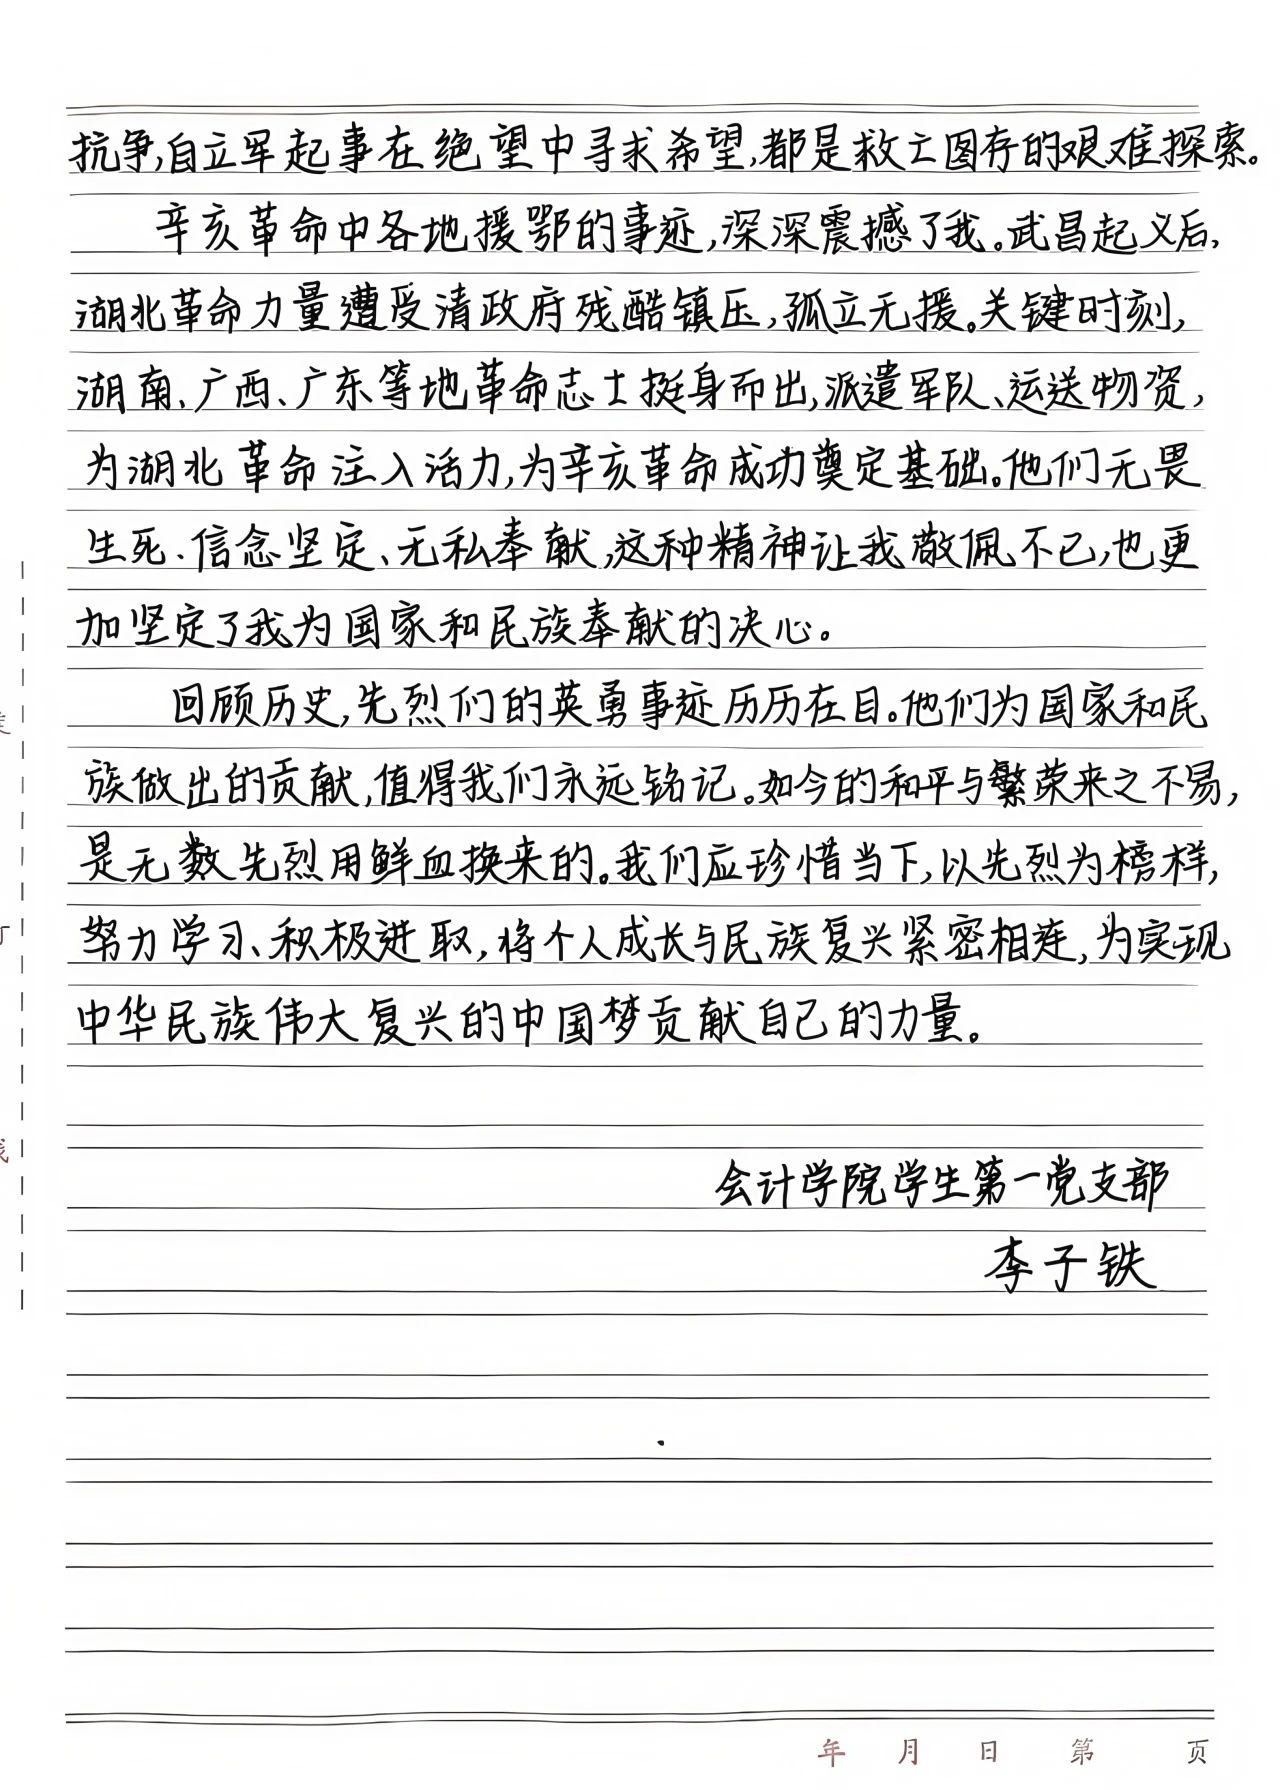 抗争,自立军起事在绝望中寻求希望,都是救亡图存的艰难探索。
辛亥革命中各地援鄂的事迹,深深震撼了我。武昌起义后,
湖北革命力量遭受清政府残酷镇压,孤立无援。关键时刻,
湖南、广西、广东等地革命志士挺身而出,派遣军队、运送物资,
为湖北革命注入活力,为辛亥革命成功奠定基础。他们无畏
生死、信念坚定、无私奉献,这种精神让我敬佩不已,也更
加坚定了我为国家和民族奉献的决心。
回顾历史,先烈们的英勇事迹历历在目。他们为国家和民
族做出的贡献,值得我们永远铭记。如今的和平与繁荣来之不易,
是无数先烈用鲜血换来的。我们应珍惜当下,以先烈为榜样,
努力学习、积极进取,将个人成长与民族复兴紧密相连,为实现
中华民族伟大复兴的中国梦贡献自己的力量。
会计学院学生第一党支部
李子铁
年 月 日 第 页